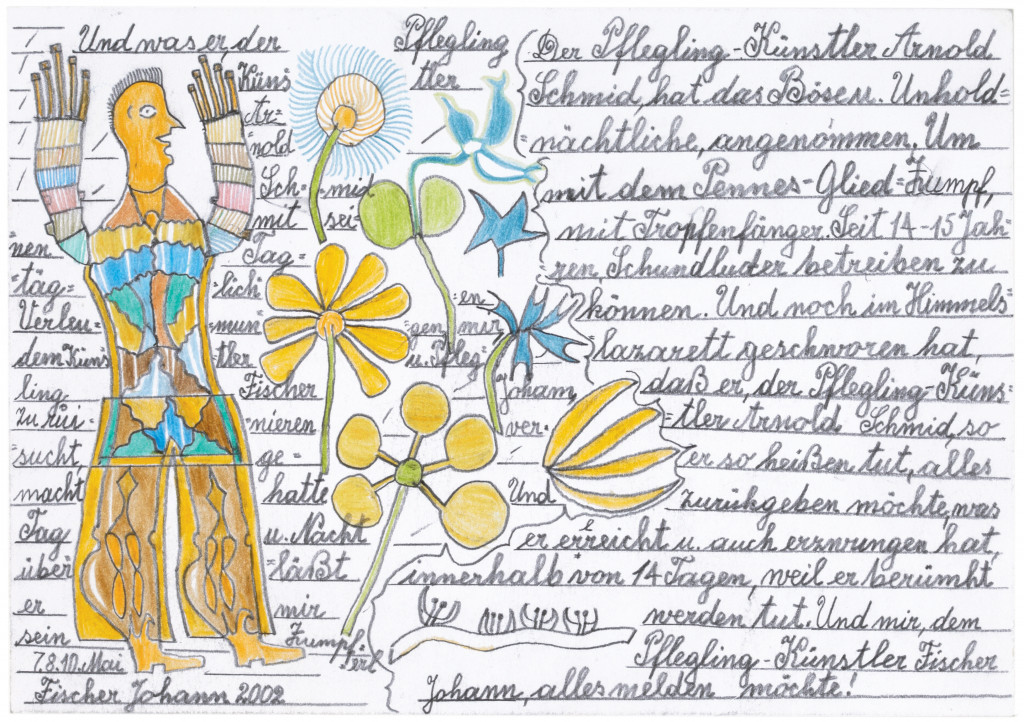 Und was er, der Pflegling
Küns= tler
Ar=
=nold
Sch= =mid
mit sei=
nen Tag=
=täg= =lich =en
Verleu= =mun= =gen, mir
dem Küns =tler u. Pfleg=
ling Fischer Johann,
zu rui= =nieren ver=
sucht, ge=
macht, hatte Und
Tag u. Nacht
über läßt
er mir
sein Zumpf=
=erl
7.8.10. Mai
Fischer Johann 2002
Der Pflegling-Künstler Arnold
Schmid, hat das Böse u. Unhold=
=nächtliche, angenommen. Um
mit dem Pennes-Glied=Zumpf,
mit Tropfenfänger. Seit 14-15 Jah=
=ren, Schundluder betreiben zu
können. Und noch im Himmels=
=lazarett geschworen hat,
daß er, der Pflegling-Küns=
=tler Arnold Schmid, so
er so heißen tut, alles
zurükgeben möchte, was
er erreicht u. auch erzwungen hat,
innerhalb von 14 Tagen, weil er berümht
werden tut. Und mir, dem
Pflegling-Künstler Fischer
Johann, alles melden möchte!